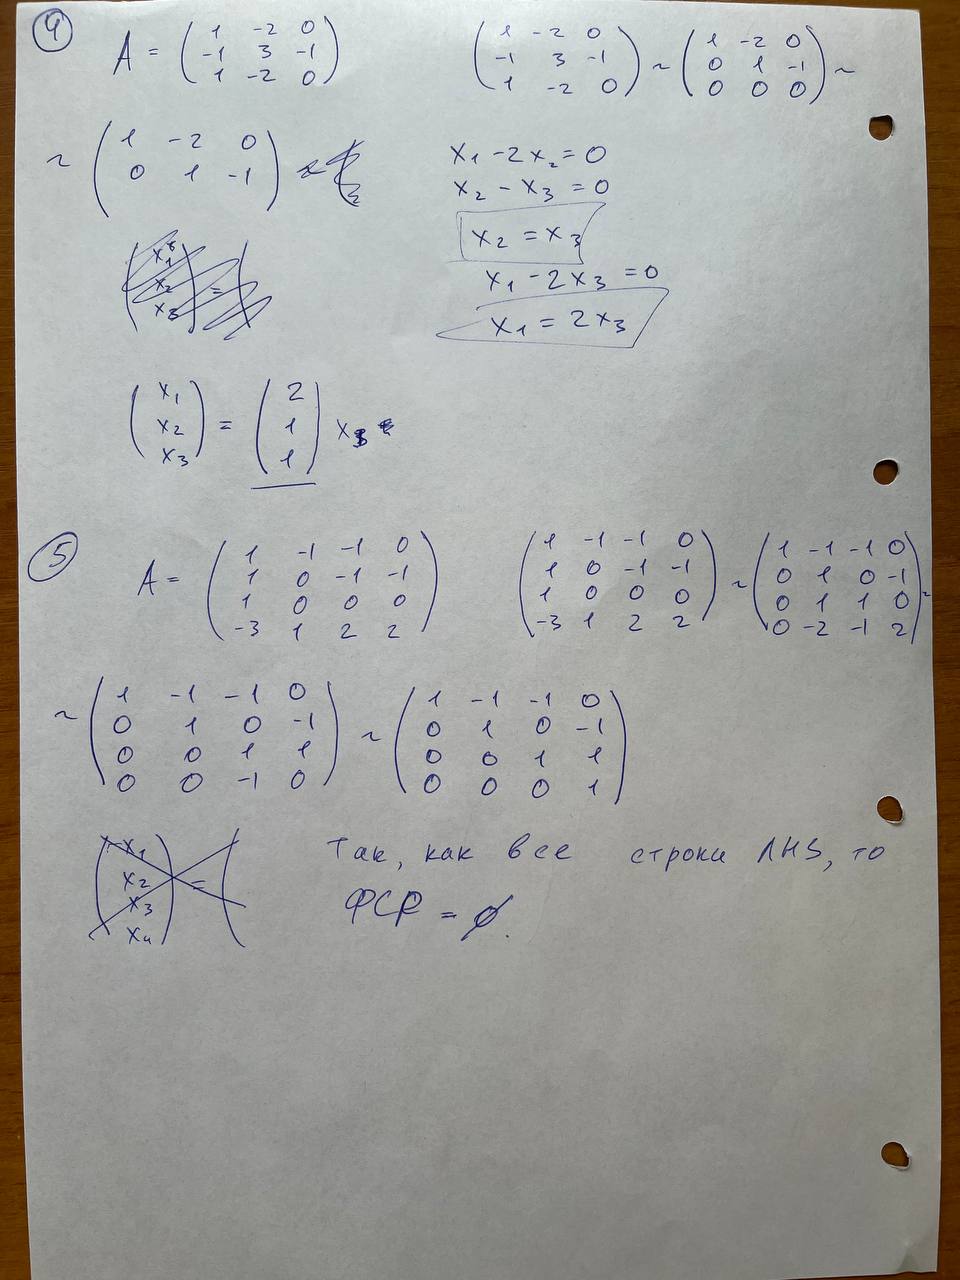 4
A = ( 1 -2 0 ; -1 3 -1 ; 1 -2 0 )
( 1 -2 0 ; -1 3 -1 ; 1 -2 0 ) ~ ( 1 -2 0 ; 0 1 -1 ; 0 0 0 ) ~
~ ( 1 -2 0 ; 0 1 -1 )
x₁ - 2x₂ = 0
x₂ - x₃ = 0
x₂ = x₃
x₁ - 2x₃ = 0
x₁ = 2x₃
( x₁ ; x₂ ; x₃ ) =
( x₁ ; x₂ ; x₃ ) = ( 2 ; 1 ; 1 ) x₃
5
A = ( 1 -1 -1 0 ; 1 0 -1 -1 ; 1 0 0 0 ; -3 1 2 2 )
( 1 -1 -1 0 ; 1 0 -1 -1 ; 1 0 0 0 ; -3 1 2 2 ) ~ ( 1 -1 -1 0 ; 0 1 0 -1 ; 0 1 1 0 ; 0 -2 -1 2 ) ~
~ ( 1 -1 -1 0 ; 0 1 0 -1 ; 0 0 1 1 ; 0 0 -1 0 ) ~ ( 1 -1 -1 0 ; 0 1 0 -1 ; 0 0 1 1 ; 0 0 0 1 )
( x₁ ; x₂ ; x₃ ; x₄ ) = (
Так, как все строки ЛНЗ, то
ФСР = ∅.